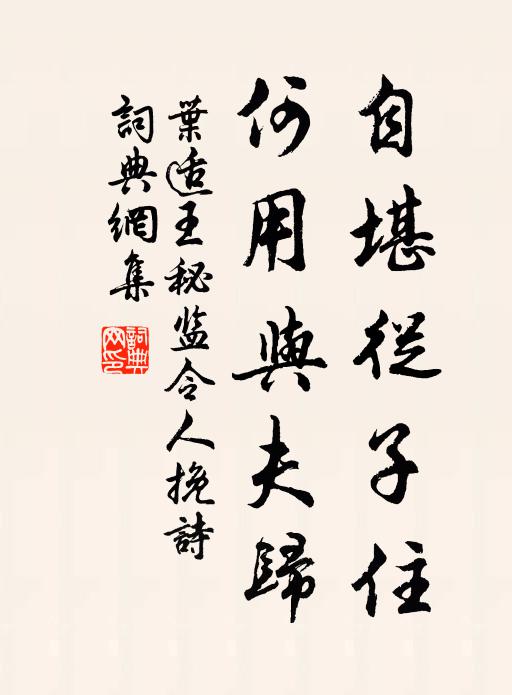 自堪從子住
何用與夫歸
葉适王秘监令人挽詩
詞典網集
詞典網印